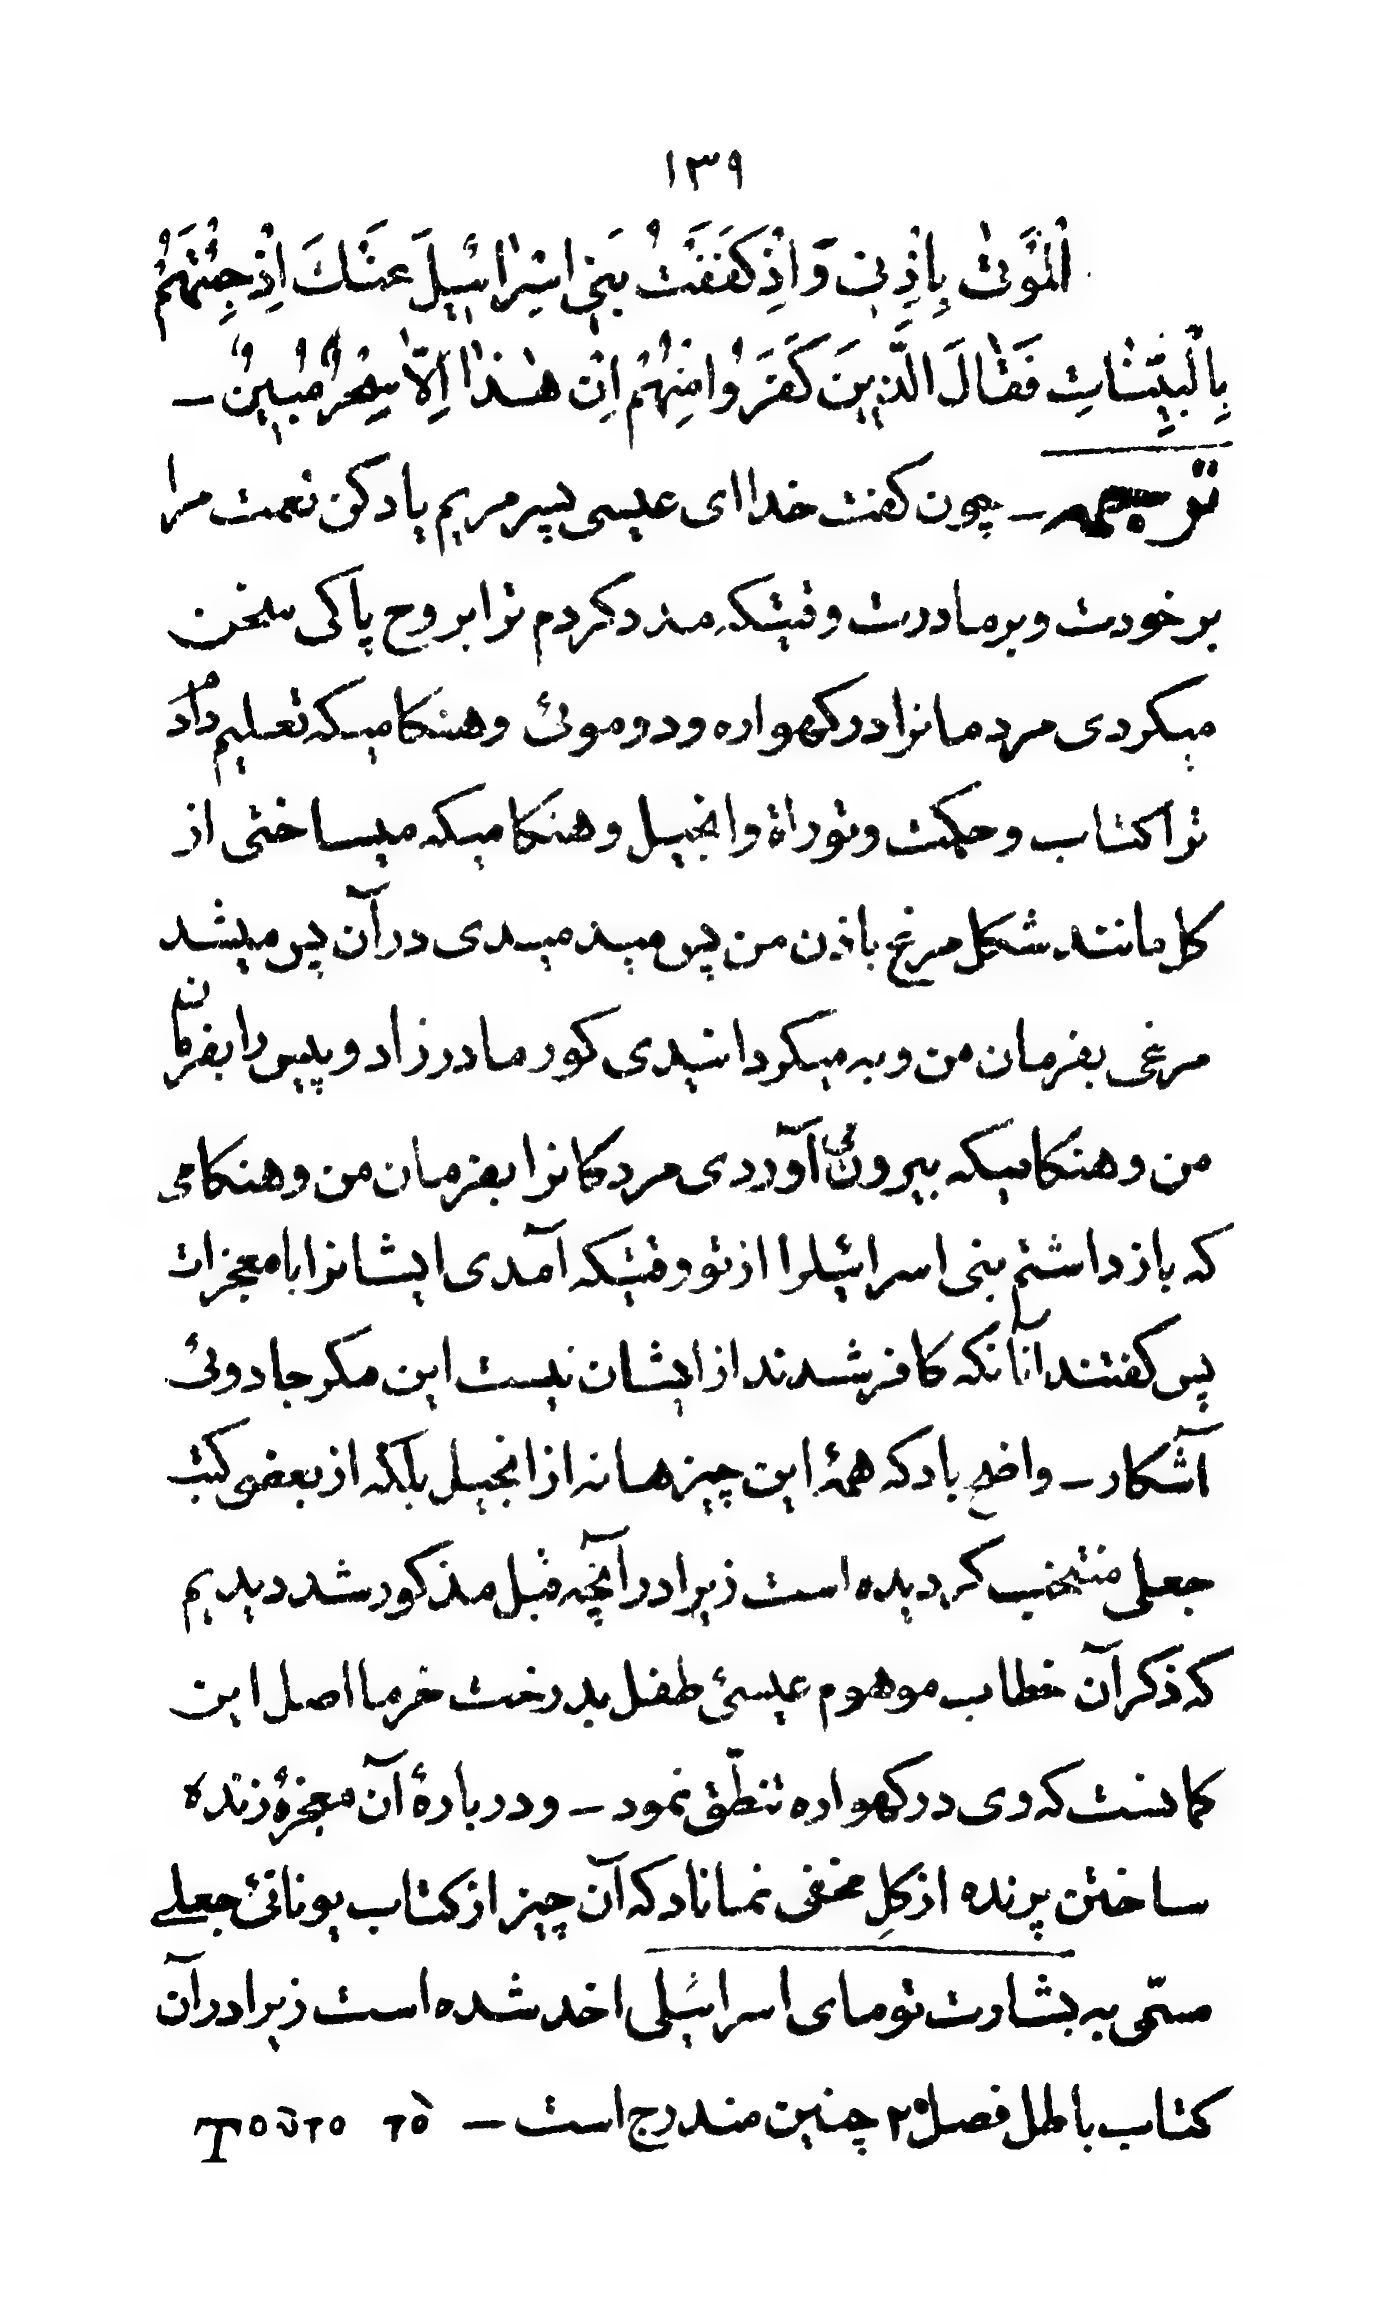 ١٣٩
الْمَوْتىٰ بِاِذْنِی وَاِذْ كَفَفْتُ بَنِی اِسْرَائِیلَ عَنْكَ اِذْ جِئْتَهُمْ
بِالْبَیِّنٰاتِ فَقٰالَ الَّذِینَ كَفَرُوا مِنْهُمْ اِنْ هٰذٰا اِلّاٰ سِحْرٌ مُبِینٌ –
ترجمه – چون كفت خدا ای عیسی پسر مریم یاد كن نعمت مرا
بر خودت و بر مادرت وقتیكه مدد كردم ترا بروح پاكی سخن
میكردی مردمانرا در كهواره و دوموئی و هنكامیكه تعلیم دادم
ترا كتاب و حكمت و توراة و انجیل و هنكامیكه میساختی از
كل مانند شكل مرغ باذن من پس میدمیدی در آن پس میشد
مرغی بفرمان من و به میكردانیدی كور مادرزاد و پیس را بفرمان
من و هنكامیكه بیرون می آوردی مردكانرا بفرمان من و هنكامی
كه باز داشتم بنی اسرائیلرا از تو وقتیكه آمدی ایشانرا با معجزات
پس كفتند آنانكه كافر شدند از ایشان نیست این مكر جادوئی
آشكار – واضح باد كه همهٔ این چیزها نه از انجیل بلكه از بعضی كتب
جعلی منتخب كردیده است زیرا در آنچه قبل مذكور شد دیدیم
كه ذكر آن خطاب موهوم عیسیٔ طفل بدرخت خرما اصل این
كمانست كه وی در كهواره تنطّق نمود – و در بارهٔ آن معجزهٔ زنده
ساختن پرنده از كِل مخفی نماناد كه آن چیز از كتاب یونانیٔ جعلی
مسمّی به بشارت تومای اسرائیلی اخد شده است زیرا در آن
كتاب باطل فصل ٢ چنین مندرج است – Τοῦτο τὸ